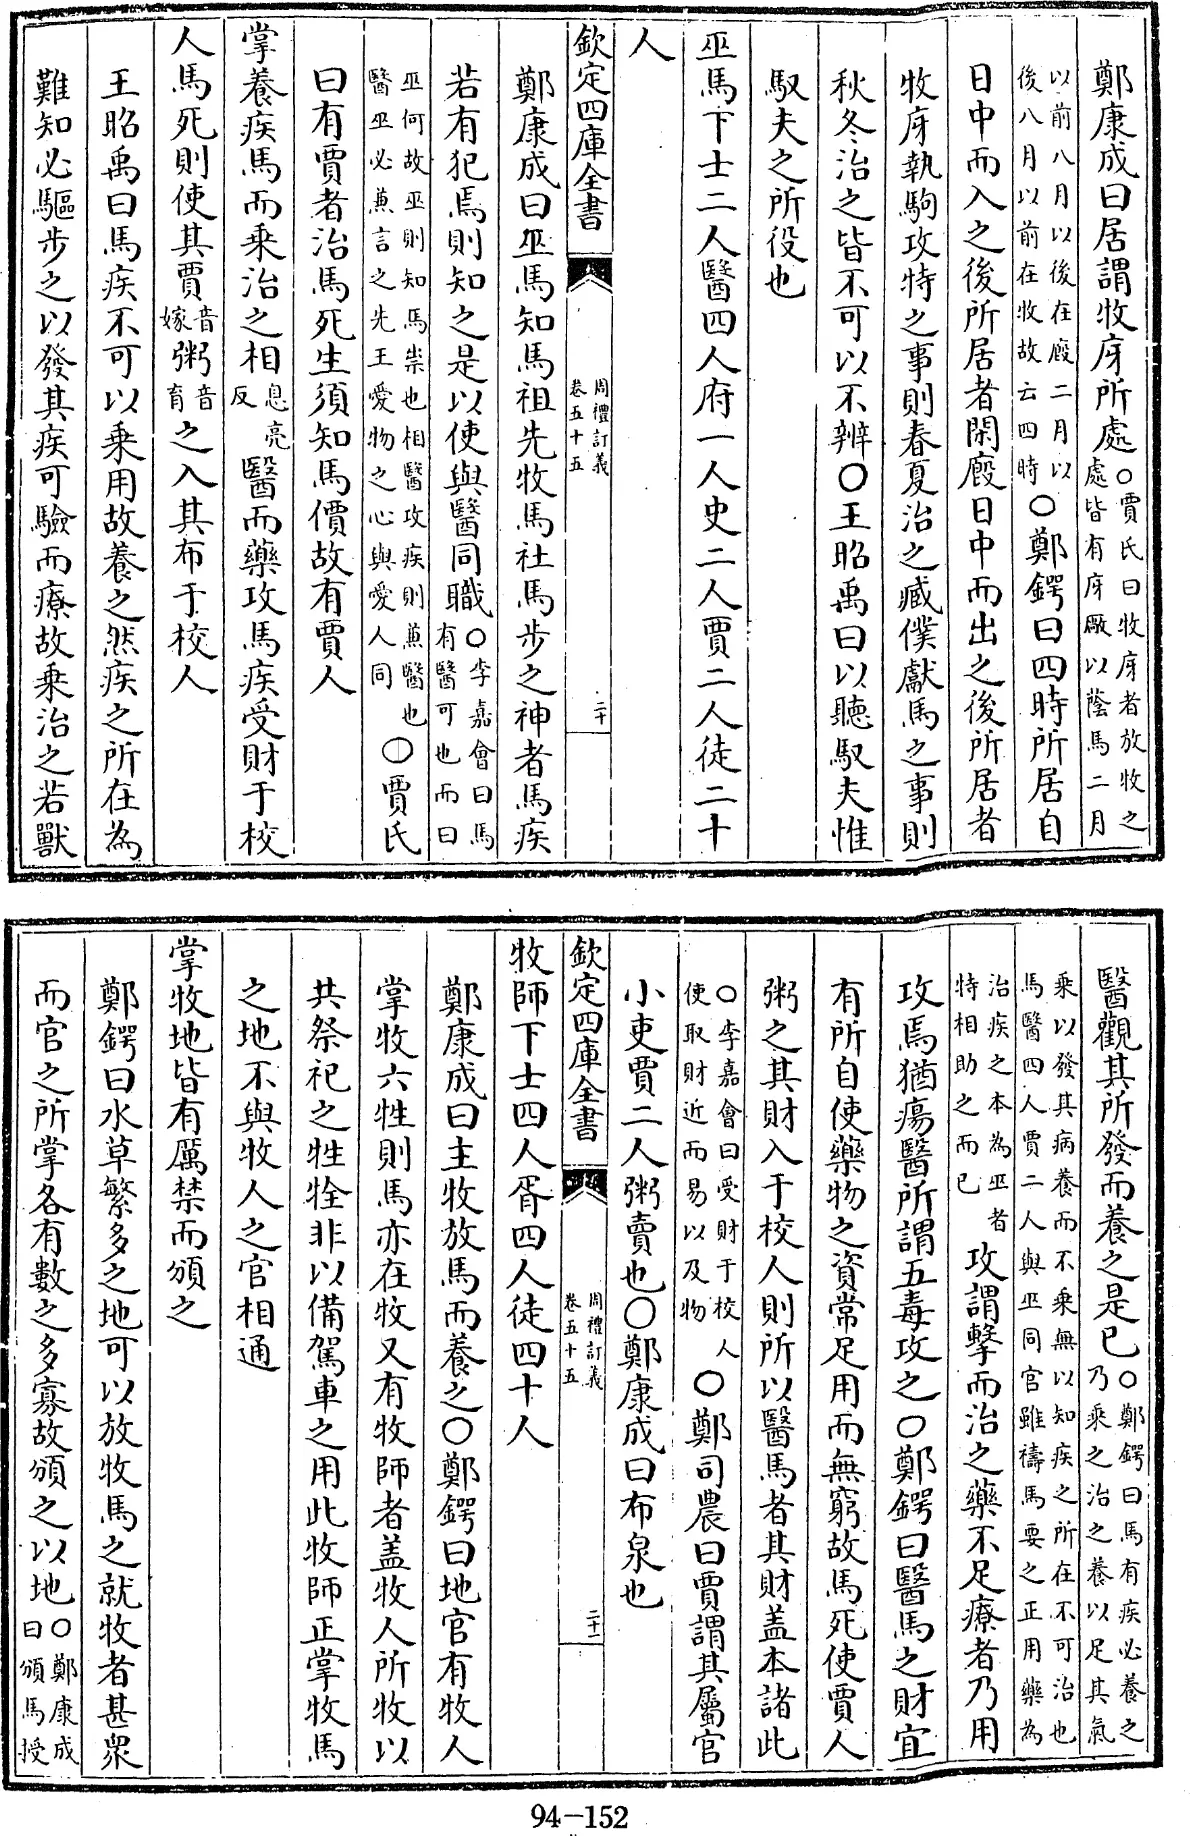 鄭康成曰居謂牧庌所處○賈氏曰牧庌者放牧之處皆有庌廠以蔭馬二月
以前八月以後在廐二月以後八月以前在牧故云四時○鄭鍔曰四時所居自
日中而入之後所居者閑廐日中而出之後所居者
牧庌執駒攻特之事則春夏治之臧僕獻馬之事則
秋冬治之皆不可以不辨○王昭禹曰以聽馭夫惟
馭夫之所役也
巫馬下士二人醫四人府一人史二人賈二人徒二十
人
欽定四庫全書 周禮訂義卷五十五 二十
鄭康成曰巫馬知馬祖先牧馬社馬步之神者馬疾
若有犯焉則知之是以使與醫同職○李嘉會曰馬有醫可也而曰
巫何故巫則知馬祟也相醫攻疾則兼醫也醫巫必兼言之先王愛物之心與愛人同○賈氏
曰有賈者治馬死生須知馬價故有賈人
掌養疾馬而乘治之相息亮反醫而藥攻馬疾受財于校
人馬死則使其賈音嫁粥音育之入其布于校人
王昭禹曰馬疾不可以乘用故養之然疾之所在為
難知必驅步之以發其疾可驗而療故乘治之若獸
醫觀其所發而養之是已○鄭鍔曰馬有疾必養之乃乘之治之養以足其氣
乘以發其病養而不乘無以知疾之所在不可治也馬醫四人賈二人與巫同官雖禱馬要之正用藥為
治疾之本為巫者特相助之而已攻謂擊而治之藥不足療者乃用
攻焉猶瘍醫所謂五毒攻之○鄭鍔曰醫馬之財宜
有所自使藥物之資常足用而無窮故馬死使賈人
粥之其財入于校人則所以醫馬者其財盖本諸此
○李嘉會曰受財于校人使取財近而易以及物○鄭司農曰賈謂其屬官
小吏賈二人粥賣也○鄭康成曰布泉也
欽定四庫全書 周禮訂義卷五十五 二十一
牧師下士四人胥四人徒四十人
鄭康成曰主牧放馬而養之○鄭鍔曰地官有牧人
掌牧六牲則馬亦在牧又有牧師者盖牧人所牧以
共祭祀之牲牷非以備駕車之用此牧師正掌牧馬
之地不與牧人之官相通
掌牧地皆有厲禁而頒之
鄭鍔曰水草繁多之地可以放牧馬之就牧者甚衆
而官之所掌各有數之多寡故頒之以地○鄭康成曰頒馬授
94-152